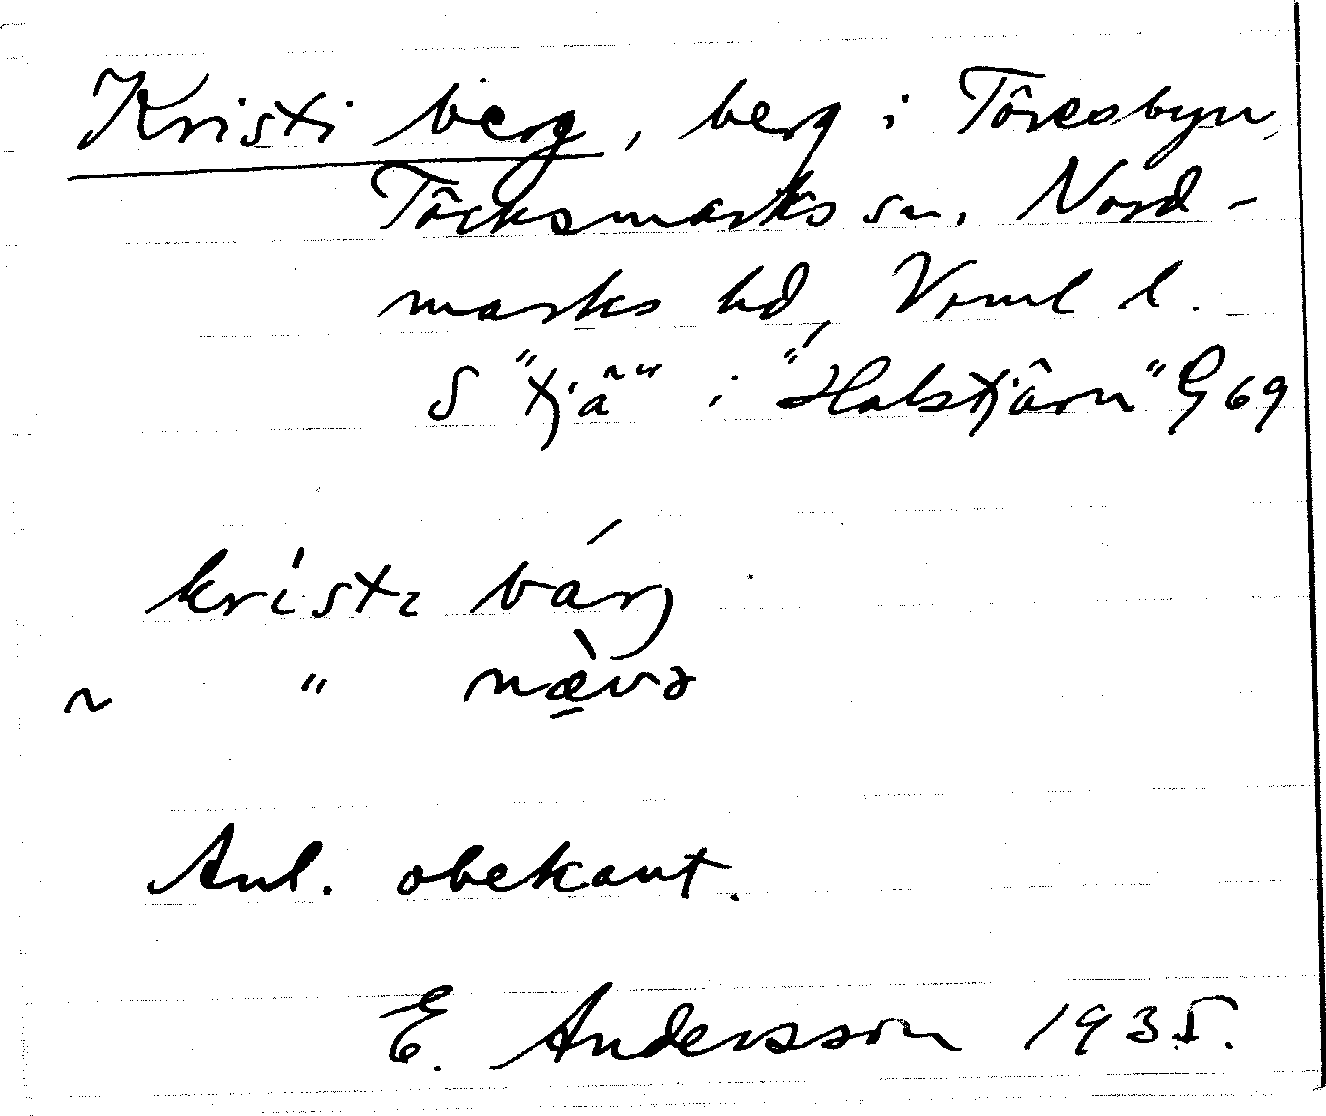 Kristi berg, berg i Töresbyn,
Töcksmarks sn, Nord-
marks hd, Vrml l.
S "tjä" i "Holstjärn" G 69
kristi bárj
~ " næ̀və
Anl. obekant.
E. Andersson 1935.